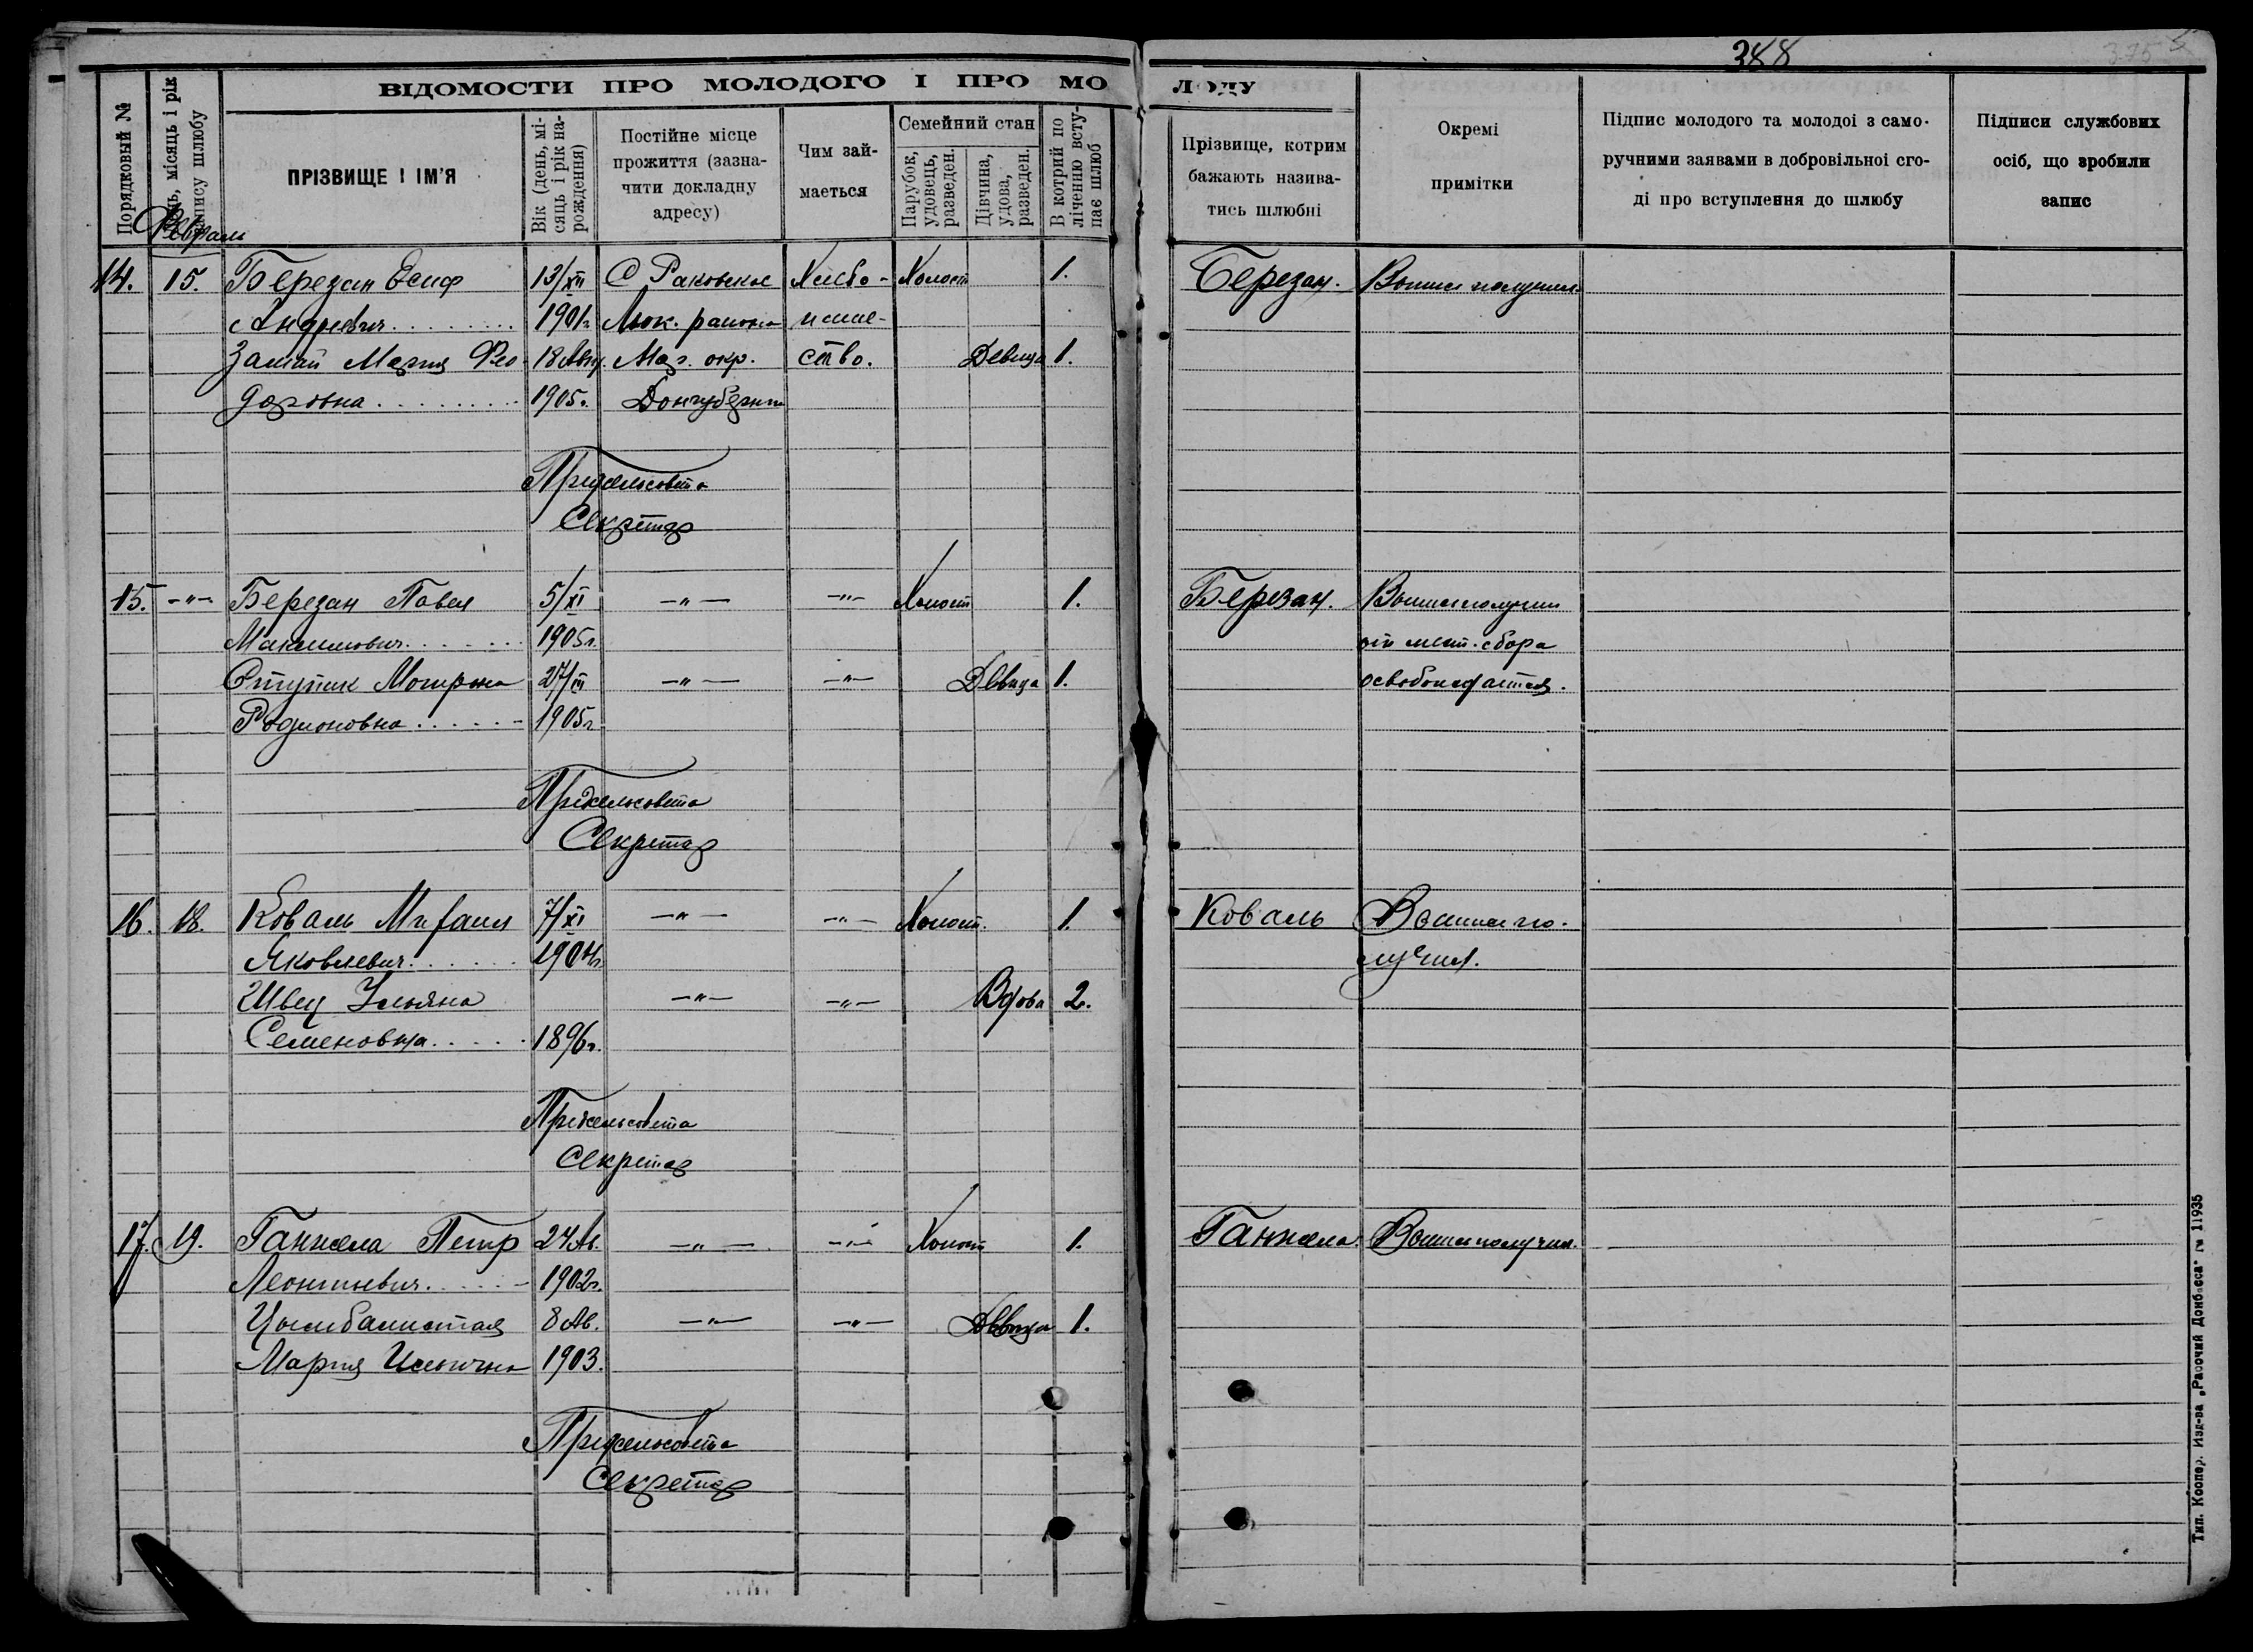 388
375
ВІДОМОСТИ ПРО МОЛОДОГО І ПРО МОЛОДУ
Порядковый №
місяць і рік запису шлюбу
ПРІЗВИЩЕ І ІМ'Я
Вік (день, місяць і рік народження)
Постійне місце прожиття (зазначити докладну адресу)
Чим займається
Семейний стан
Парубок, удовець, разведен.
Дівчина, удова, разведен.
В котрий по ліченню вступає шлюб
Прізвище, котрим бажають называтись шлюбні
Окремі примітки
Підпис молодого та молодоі з саморучними заявами в добровільноі сгоді про вступлення до шлюбу
Підписи службових осіб, що зробили запис
Февраль
14. 15. Березан Осип 13/XII С Раковское Хлебо- Холост 1. Березан. Выпись получил.
Андреевич 1901г. Люк. района паше-
Мария Фео- 18 Авг. Маг. окр. ство. Девица 1.
доровна 1905г. Донгубернии
Предсельсовета
Секретар
15. -"- Березан Павел 5/XI -"- -"- Холост 1. Березан. Выпись получил
Максимович 1905г. от гист. сбора
Мотрона 27/III -"- -"- Девица 1. освобождается.
Родионовна 1905г.
Предсельсовета
Секретар
16. 18. Коваль Михаил 7/XI -"- -"- Холост. 1. Коваль Выпись по-
Яковлевич 1904г. лучил.
Швец Ульяна -"- -"- Вдова 2.
Семеновна 1896г.
Предсельсовета
Секретар
17. 19. Ганжела Петр 24 Ав. -"- -"- Холост 1. Ганжела. Выпись получил.
Леонтиевич 1902г.
Цымбалистая 8 Ав. -"- -"- Девица 1.
Мария Ильинична 1903.
Предсельсовета
Секретар
Тип. Коопер. Изд-ва „Рабочий Донбасса" гм 11935